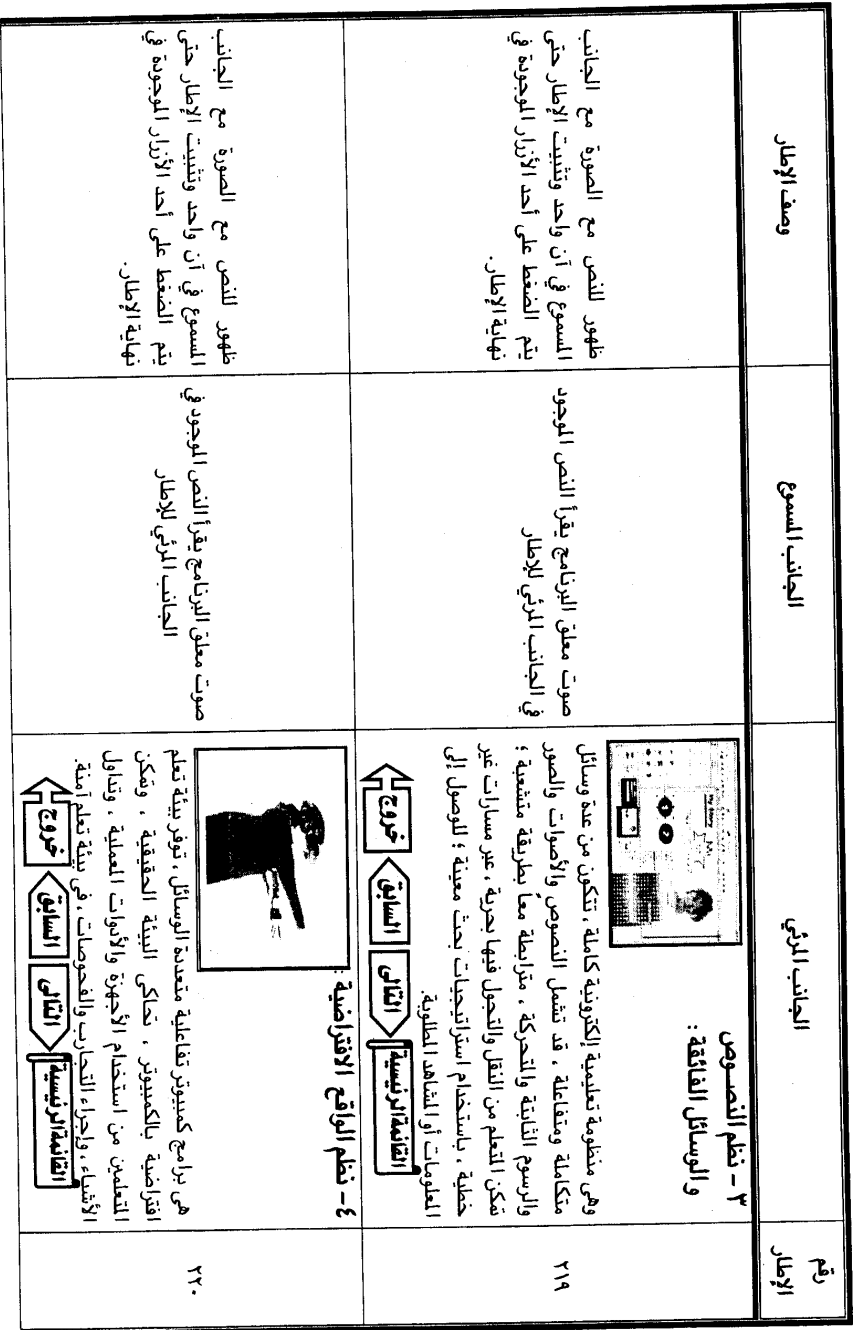 رقم
الإطار
الجانب المرئي
الجانب المسموع
وصف الإطار
٢١٩
٣ – نظم النصوص
والوسائل الفائقة :
وهى منظومة تعليمية إلكترونية كاملة ، تتكون من عدة وسائل
متكاملة ومتفاعلة ، قد تشمل النصوص والأصوات والصور
والرسوم الثابتة والمتحركة ، مترابطة معاً بطريقة متشعبة ؛
تمكن المتعلم من النقل والتجول فيها بحرية ، عبر مسارات غير
خطية ، باستخدام استراتيجيات بحث معينة ؛ للوصول إلى
المعلومات أو المشاهد المطلوبة.
القائمة الرئيسية
التالى
السابق
خروج
صوت معلق البرنامج يقرأ النص الموجود
في الجانب المرئي للإطار
ظهور للنص مع الصورة مع الجانب
المسموع في آن واحد وتثبيت الإطار حتى
يتم الضغط على أحد الأزرار الموجودة في
نهاية الإطار.
٢٢٠
٤ – نظم الواقع الافتراضية :
هى برامج كمبيوتر تفاعلية متعددة الوسائل ، توفر بيئة تعلم
افتراضية بالكمبيوتر ، تحاكى البيئة الحقيقية ، وتمكن
المتعلمين من استخدام الأجهزة والأدوات المعملية ، وتداول
الأشياء ، وإجراء التجارب والفحوصات ، فى بيئة تعلم آمنة.
القائمة الرئيسية
التالى
السابق
خروج
صوت معلق البرنامج يقرأ النص الموجود في
الجانب المرئي للإطار
ظهور للنص مع الصورة مع الجانب
المسموع في آن واحد وتثبيت الإطار حتى
يتم الضغط على أحد الأزرار الموجودة في
نهاية الإطار.